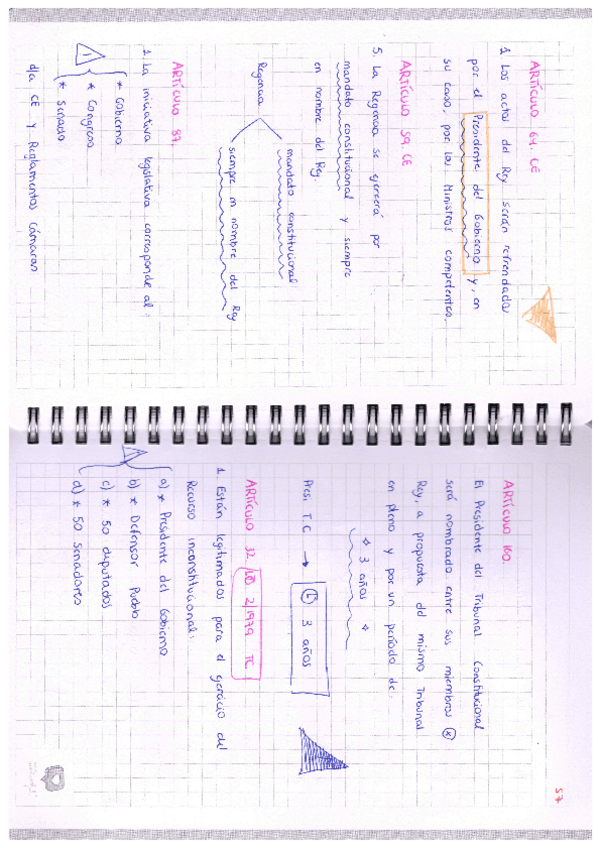 ARTÍCULO 64. CE
1. Los actos del Rey serán refrendados
por el Presidente del Gobierno y, en
su caso, por los Ministros competentes.
ARTÍCULO 59. CE
5. La Regencia se ejercerá por
mandato constitucional y siempre
en nombre del Rey.
Regencia
mandato constitucional
siempre en nombre del Rey
ARTÍCULO 87.
1. La iniciativa legislativa corresponde al:
* Gobierno
* Congreso
* Senado
d/a CE y Reglamentos Cámaras
57
ARTÍCULO 160.
El Presidente del Tribunal Constitucional
será nombrado entre sus miembros (*)
Rey, a propuesta del mismo Tribunal
en pleno y por un período de:
3 años
Presi TC → 3 años
ARTÍCULO 32 LO 2/1979 TC
1. Están legitimados para el ejercicio del
Recurso inconstitucional:
a) * Presidente del Gobierno
b) * Defensor Pueblo
c) * 50 diputados
d) * 50 Senadores